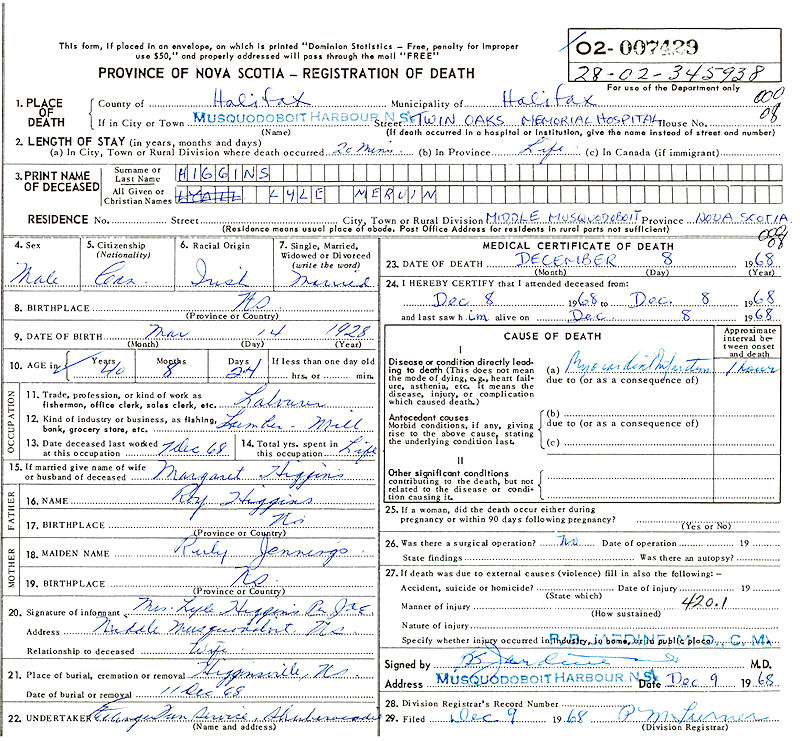 This form, if placed in an envelope, on which is printed "Dominion Statistics – Free, penalty for improper
use $50," and properly addressed will pass through the mail "FREE"
02-007429
28-02-345938
For use of the Department only
PROVINCE OF NOVA SCOTIA – REGISTRATION OF DEATH
000
08
1. PLACE OF DEATH
County of Halifax Municipality of Halifax
If in City or Town MUSQUODOBOIT HARBOUR, N.S. Street TWIN OAKS MEMORIAL HOSPITAL House No.
(Name) (If death occurred in a hospital or institution, give the name instead of street and number)
2. LENGTH OF STAY (in years, months and days)
(a) In City, Town or Rural Division where death occurred 20 mins. (b) In Province Life (c) In Canada (if immigrant)
3. PRINT NAME OF DECEASED
Surname or Last Name HIGGINS
All Given or Christian Names LYLE MERVIN
RESIDENCE No. Street City, Town or Rural Division MIDDLE MUSQUODOBOIT Province NOVA SCOTIA
(Residence means usual place of abode. Post Office Address for residents in rural parts not sufficient)
08
4. Sex
Male
5. Citizenship (Nationality)
Can.
6. Racial Origin
Irish
7. Single, Married, Widowed or Divorced (write the word)
Married
8. BIRTHPLACE NS
(Province or Country)
9. DATE OF BIRTH Mar 14 1928
(Month) (Day) (Year)
10. AGE in Years 40 Months 8 Days 24 If less than one day old
hrs. or min.
OCCUPATION
11. Trade, profession, or kind of work as
fisherman, office clerk, sales clerk, etc. Labourer
12. Kind of industry or business, as fishing,
bank, grocery store, etc. Lumber Mill
13. Date deceased last worked at this occupation 7 Dec 68
14. Total yrs. spent in this occupation Life
15. If married give name of wife
or husband of deceased Margaret Higgins
FATHER
16. NAME Roy Higgins
17. BIRTHPLACE NS
(Province or Country)
MOTHER
18. MAIDEN NAME Ruby Jennings
19. BIRTHPLACE NS
(Province or Country)
20. Signature of informant Mrs. Lyle Higgins
Address Middle Musquodoboit NS
Relationship to deceased Wife
21. Place of burial, cremation or removal Higginsville, NS
Date of burial or removal 11 Dec 68
22. UNDERTAKER Service, Shubenacadie
(Name and address)
MEDICAL CERTIFICATE OF DEATH
23. DATE OF DEATH DECEMBER 8 1968
(Month) (Day) (Year)
24. I HEREBY CERTIFY that I attended deceased from:
Dec 8 1968 to Dec. 8 1968
and last saw him alive on Dec. 8 1968
CAUSE OF DEATH
Approximate interval between onset and death
I
Disease or condition directly leading to death (This does not mean
the mode of dying, e.g., heart failure, asthenia, etc. It means the
disease, injury, or complication
which caused death.)
(a) Myocardial Infarction 1 hour
due to (or as a consequence of)
Antecedent causes
Morbid conditions, if any, giving
rise to the above cause, stating
the underlying condition last.
(b)
due to (or as a consequence of)
(c)
II
Other significant conditions
contributing to the death, but not
related to the disease or condition causing it.
25. If a woman, did the death occur either during
pregnancy or within 90 days following pregnancy?
(Yes or No)
26. Was there a surgical operation? No Date of operation 19
State findings Was there an autopsy?
27. If death was due to external causes (violence) fill in also the following: –
Accident, suicide or homicide? Date of injury 19
(State which)
Manner of injury 420.1
(How sustained)
Nature of injury
Specify whether injury occurred in industry, in home, or in public place
B. B. JARDINE M.D., C.M.
Signed by B Jardine M.D.
Address MUSQUODOBOIT HARBOUR, N.S. Date Dec 9 1968
28. Division Registrar's Record Number
29. Filed Dec 9 1968 P M Turner
(Division Registrar)